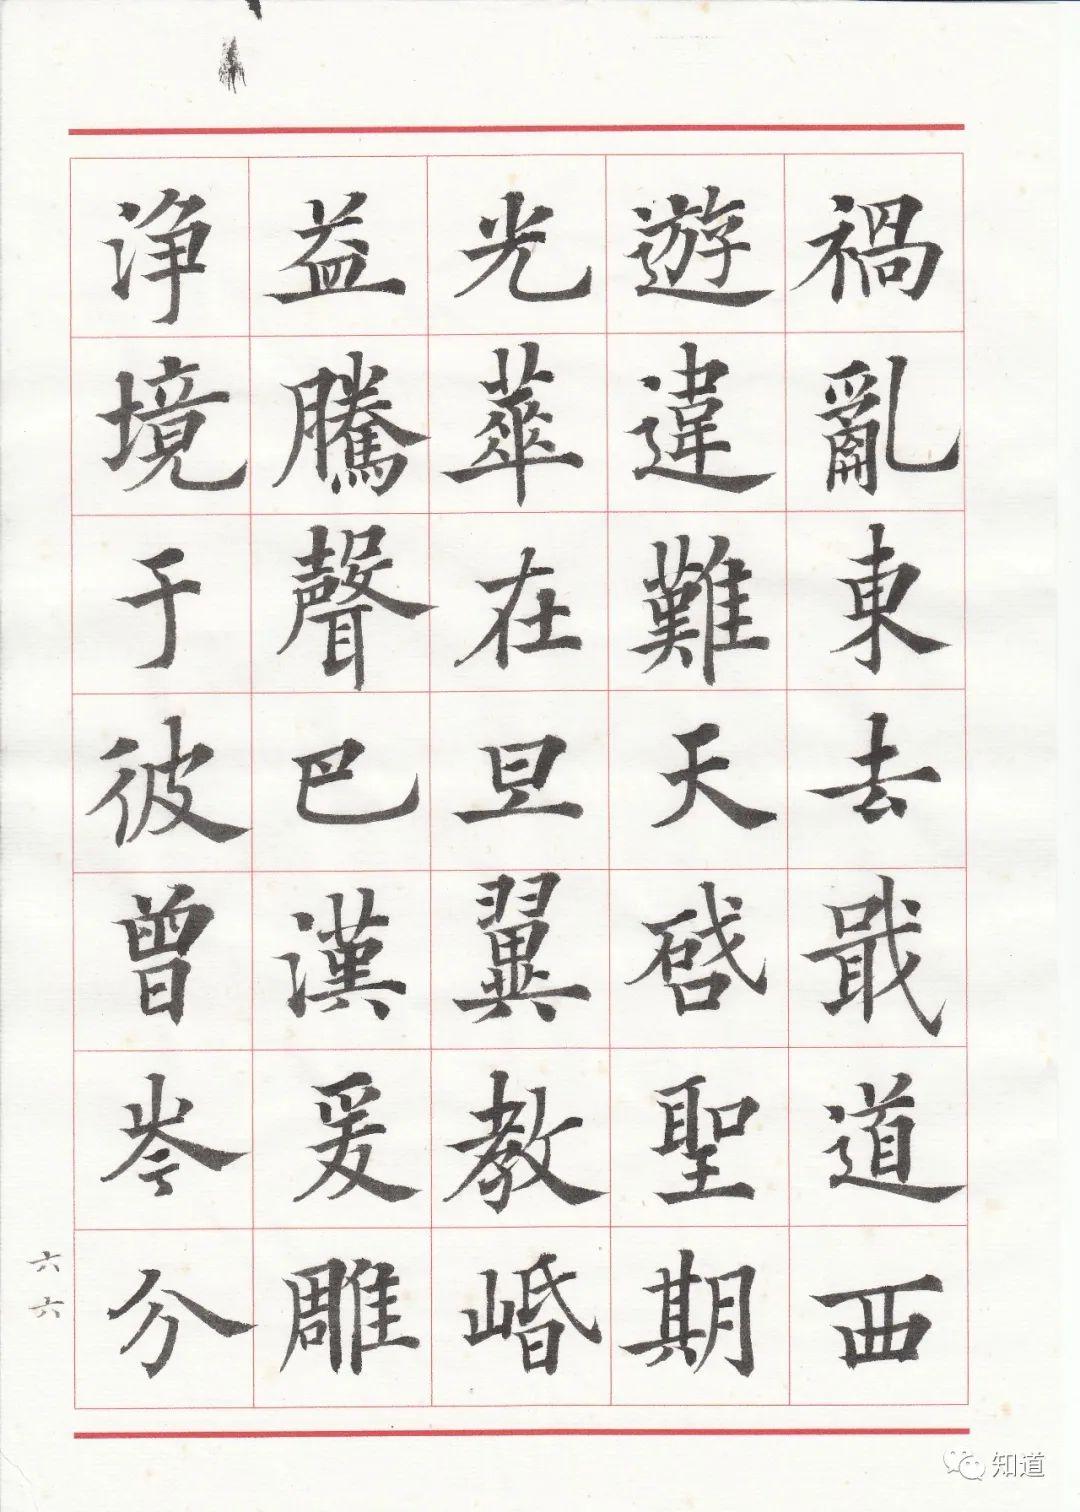 禍亂東去戢道西
遊違難天啓聖期
光華在旦翼教崏
益騰聲巴漢爰雕
浄境于彼曾岑分
六六
知道